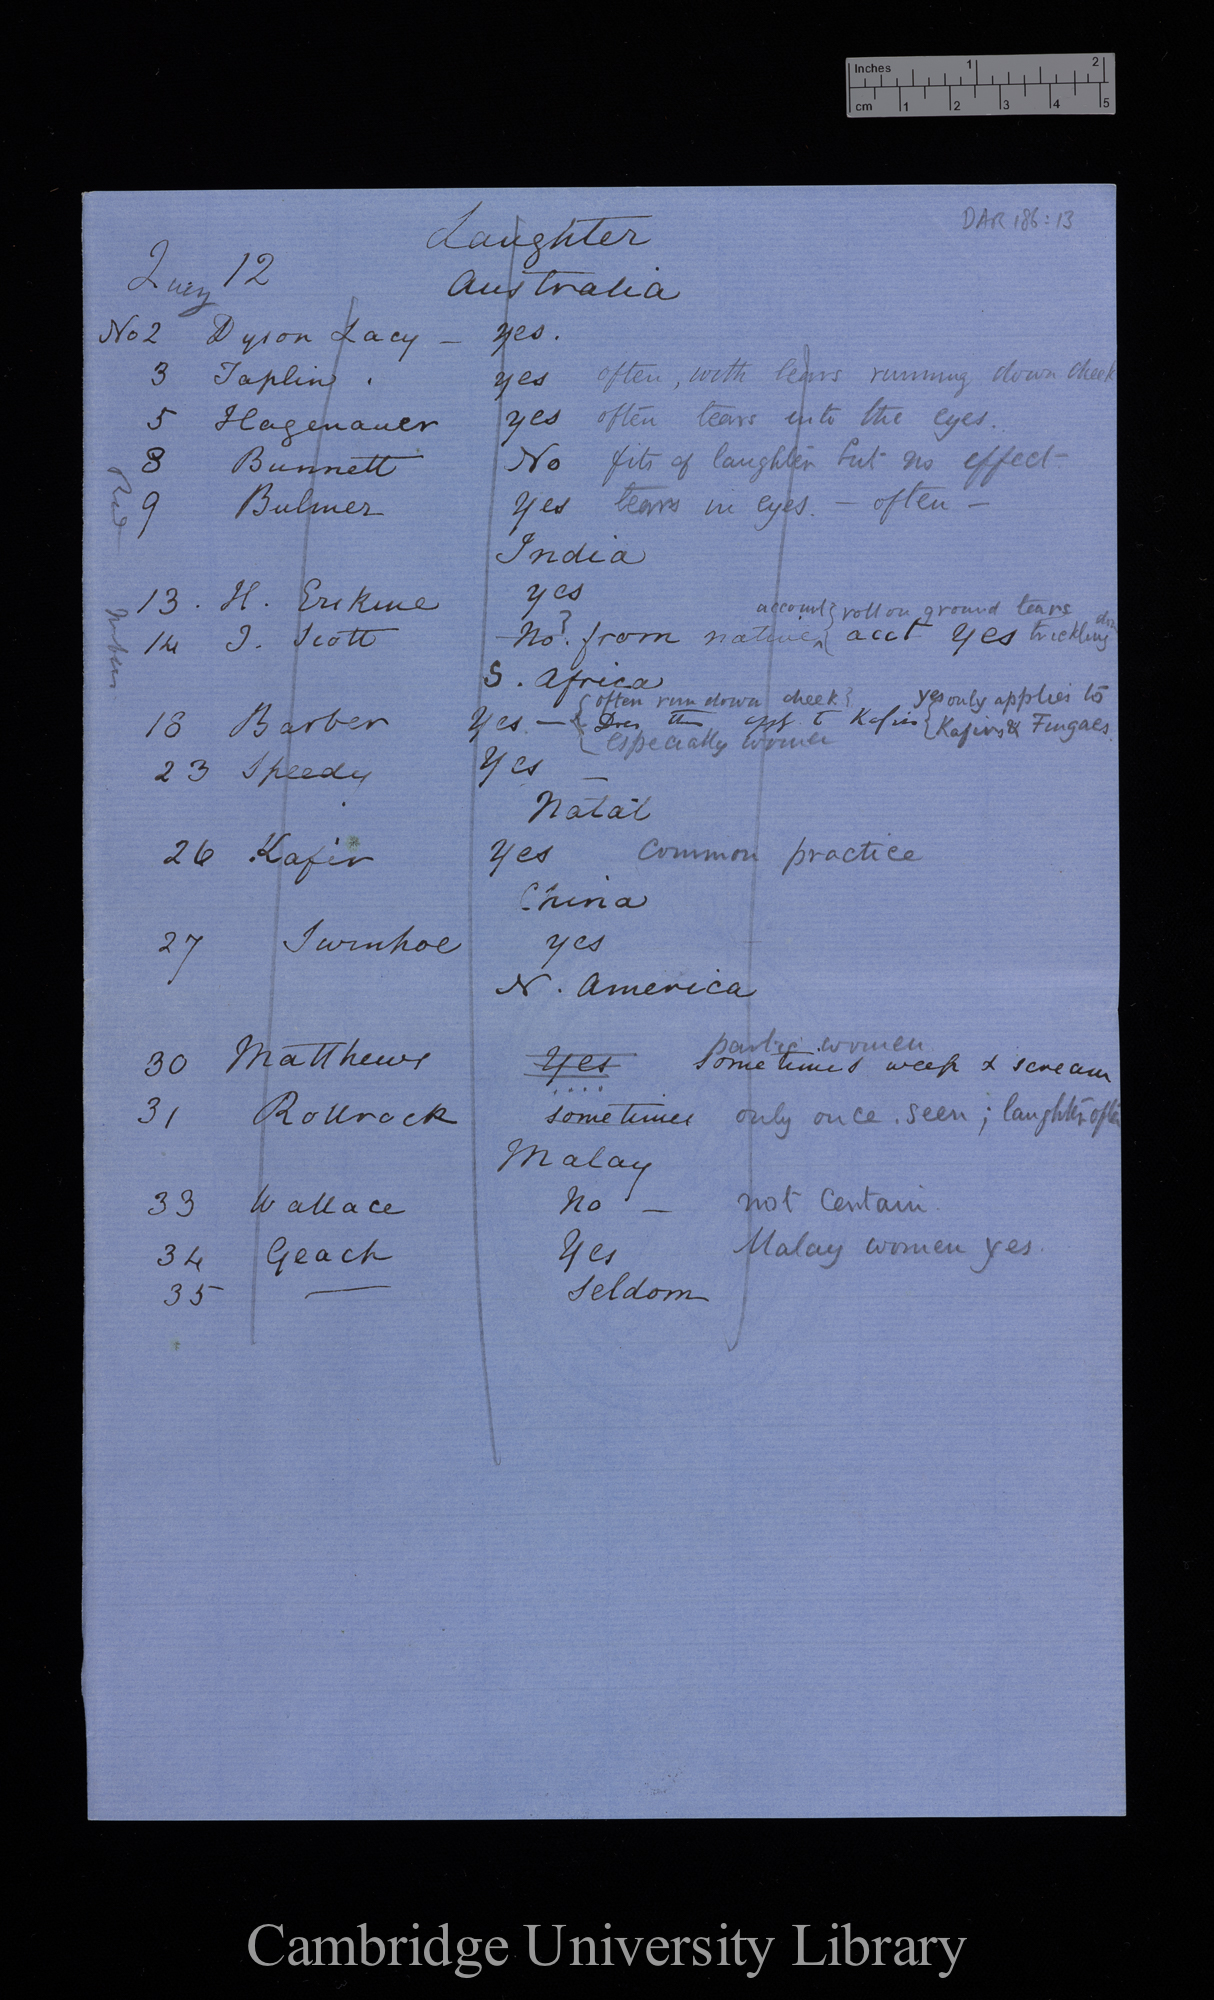 Inches 1 2
cm 1 2 3 4 5
DAR 186:13
Laughter
Query 12
Australia
No 2 Dyson Lacy – yes.
3 Taplin. yes often, with tears running down cheek
5 Hagenauer yes often tears into the eyes.
8 Bunnett No fits of laughter but no effect –
9 Bulmer Yes tears in eyes. – often –
Red numbers
India
13. H. Erskine yes
account { roll on ground tears
14 J. Scott No? from native { acct Yes trickling down
S. Africa
{ often run down cheek } yes only applies to
18 Barber Yes – { Does this app. to Kafirs { Kafirs & Fingoes
{ especially women
23 Speedy Yes –
Natal
26 Kafir Yes Common practice
China
27 Swinhoe yes
N. America
women
30 Matthews Yes sometimes weep & scream
31 Rothrock sometimes only once seen; laughter often
Malay
33 Wallace No – not certain.
34 Geach Yes Malay women yes.
35 — Seldom
Cambridge University Library